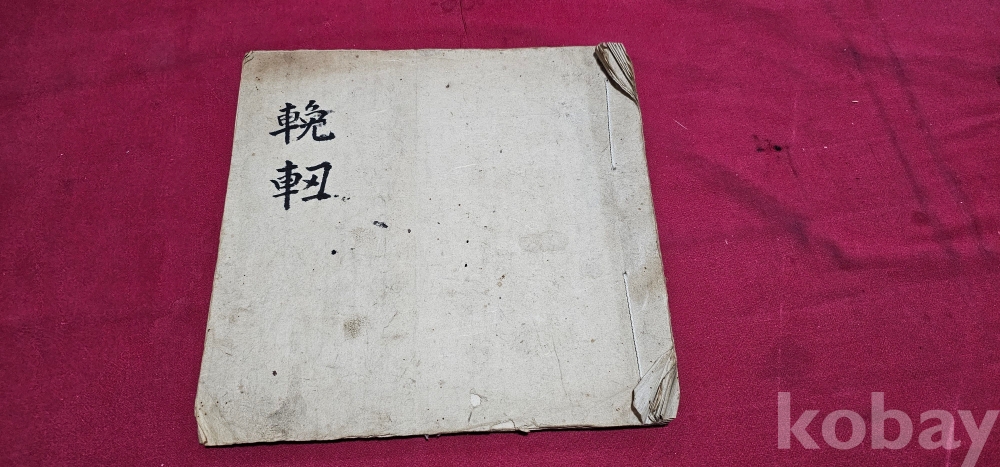 輓
kobay